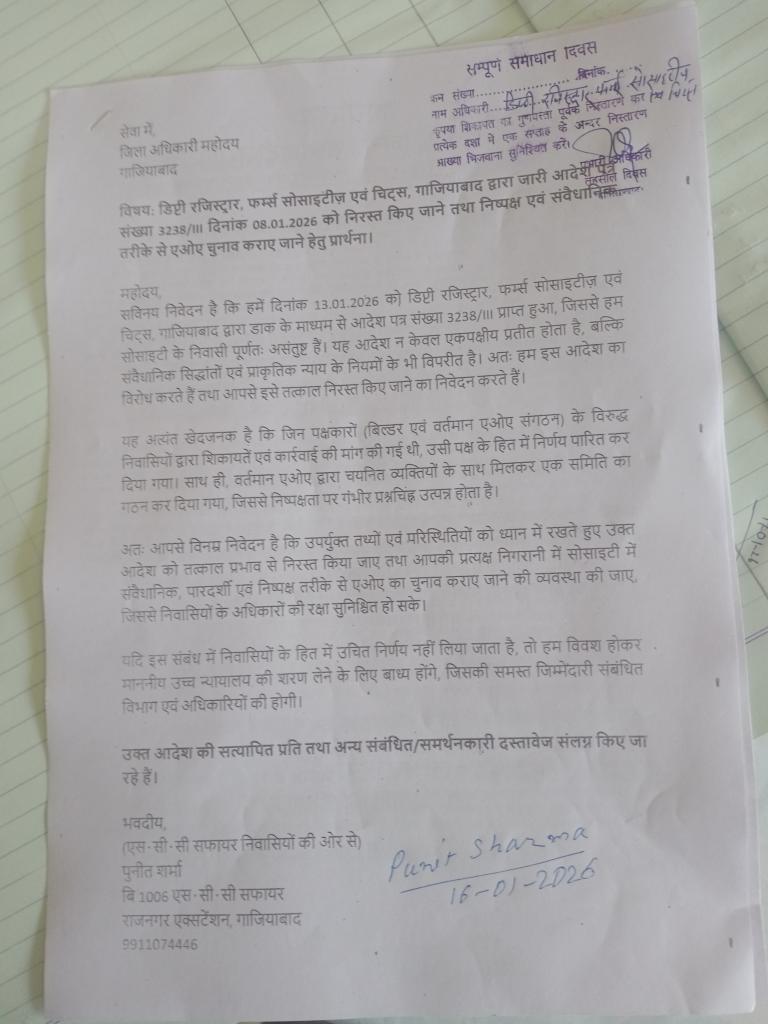 सम्पूर्ण समाधान दिवस
क्रम संख्या.................... दिनांक.......
नाम अधिकारी.... डिप्टी रजिस्ट्रार, फर्म्स सोसाइटीज एवं चिट्स
कृपया शिकायत का गुणवत्ता पूर्वक निस्तारण कर
प्रत्येक दशा में एक सप्ताह के अन्दर निस्तारण
आख्या भिजवाना सुनिश्चित करें।
प्रभारी अधिकारी
तहसील दिवस
सेवा में,
जिला अधिकारी महोदय
गाजियाबाद
विषय: डिप्टी रजिस्ट्रार, फर्म्स सोसाइटीज़ एवं चिट्स, गाजियाबाद द्वारा जारी आदेश पत्र
संख्या 3238/III दिनांक 08.01.2026 को निरस्त किए जाने तथा निष्पक्ष एवं संवैधानिक
तरीके से एओए चुनाव कराए जाने हेतु प्रार्थना।
महोदय,
सविनय निवेदन है कि हमें दिनांक 13.01.2026 को डिप्टी रजिस्ट्रार, फर्म्स सोसाइटीज़ एवं
चिट्स, गाजियाबाद द्वारा डाक के माध्यम से आदेश पत्र संख्या 3238/III प्राप्त हुआ, जिससे हम
सोसाइटी के निवासी पूर्णतः असंतुष्ट हैं। यह आदेश न केवल एकपक्षीय प्रतीत होता है, बल्कि
संवैधानिक सिद्धांतों एवं प्राकृतिक न्याय के नियमों के भी विपरीत है। अतः हम इस आदेश का
विरोध करते हैं तथा आपसे इसे तत्काल निरस्त किए जाने का निवेदन करते हैं।
यह अत्यंत खेदजनक है कि जिन पक्षकारों (बिल्डर एवं वर्तमान एओए संगठन) के विरुद्ध
निवासियों द्वारा शिकायतें एवं कार्रवाई की मांग की गई थी, उसी पक्ष के हित में निर्णय पारित कर
दिया गया। साथ ही, वर्तमान एओए द्वारा चयनित व्यक्तियों के साथ मिलकर एक समिति का
गठन कर दिया गया, जिससे निष्पक्षता पर गंभीर प्रश्नचिह्न उत्पन्न होता है।
अतः आपसे विनम्र निवेदन है कि उपर्युक्त तथ्यों एवं परिस्थितियों को ध्यान में रखते हुए उक्त
आदेश को तत्काल प्रभाव से निरस्त किया जाए तथा आपकी प्रत्यक्ष निगरानी में सोसाइटी में
संवैधानिक, पारदर्शी एवं निष्पक्ष तरीके से एओए का चुनाव कराए जाने की व्यवस्था की जाए,
जिससे निवासियों के अधिकारों की रक्षा सुनिश्चित हो सके।
यदि इस संबंध में निवासियों के हित में उचित निर्णय नहीं लिया जाता है, तो हम विवश होकर
माननीय उच्च न्यायालय की शरण लेने के लिए बाध्य होंगे, जिसकी समस्त जिम्मेंदारी संबंधित
विभाग एवं अधिकारियों की होगी।
उक्त आदेश की सत्यापित प्रति तथा अन्य संबंधित/समर्थनकारी दस्तावेज संलग्न किए जा
रहे हैं।
भवदीय,
(एस॰सी॰सी सफायर निवासियों की ओर से)
पुनीत शर्मा
बि 1006 एस॰सी॰सी सफायर
राजनगर एक्सटेंशन, गाजियाबाद
9911074446
Punit Sharma
16-01-2026